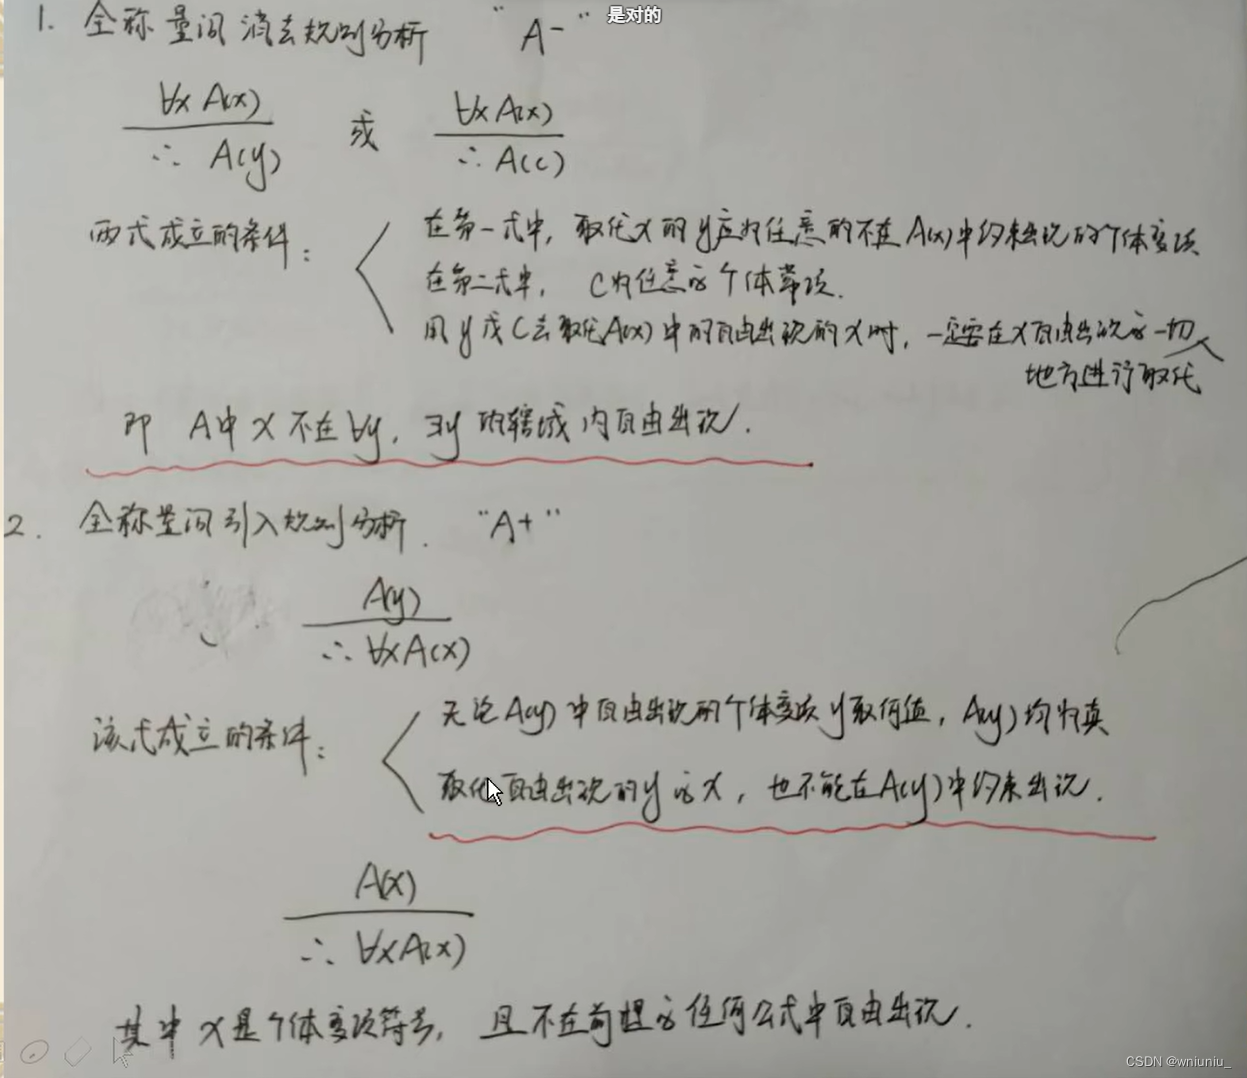 是对的
1. 全称量词消去规则分析 “A-”
∀xA(x) 或 ∀xA(x)
∴ A(y) ∴ A(c)
两式成立的条件：
在第一式中，取代x的y应为任意的不在A(x)中约束出现的个体变项
在第二式中， c为任意的个体常项.
用y或c去取代A(x)中的自由出现的x时，一定要在x自由出现的一切
地方进行取代
即 A中x不在∀y，∃y的辖域内自由出现.
2. 全称量词引入规则分析. “A+”
A(y)
∴ ∀xA(x)
该式成立的条件：
无论A(y)中自由出现的个体变项y取何值，A(y)均为真
取代自由出现的y的x，也不能在A(y)中约束出现.
A(x)
∴ ∀xA(x)
其中x是个体变项符号，且不在前提的任何公式中自由出现.
CSDN @wniuniu_